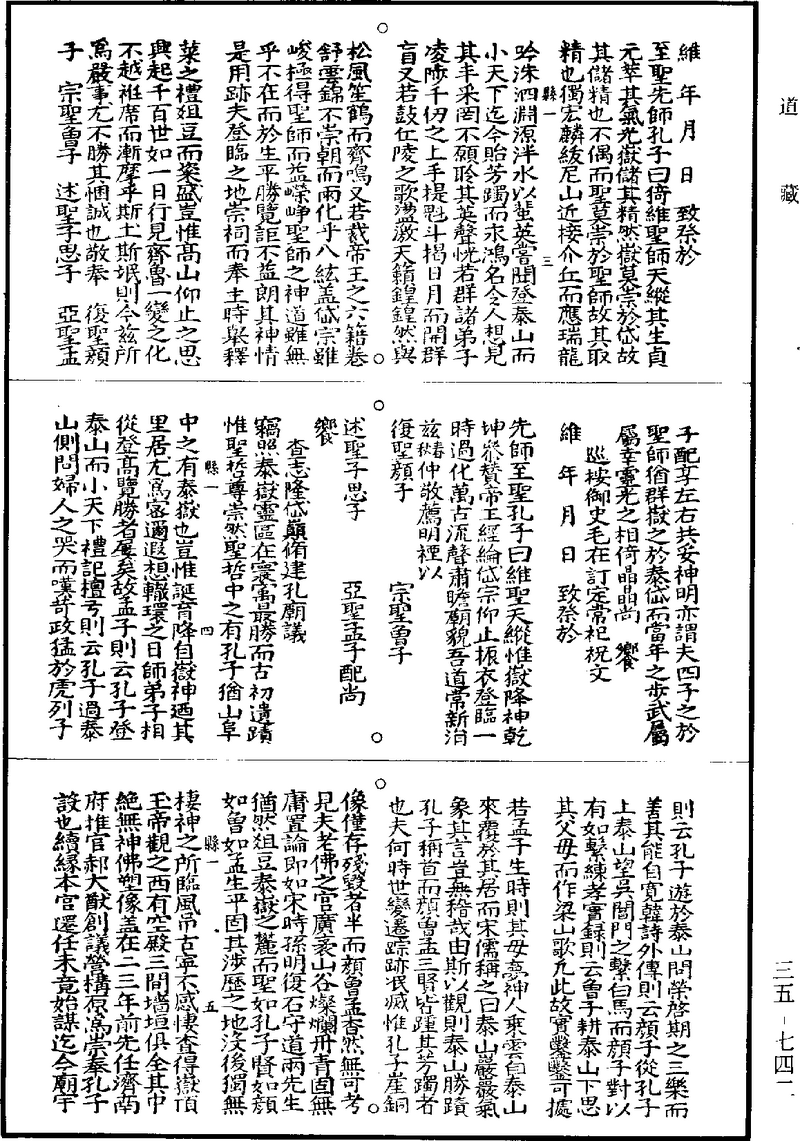 道藏
維　年　月　日　致祭於
至聖先師孔子曰猗維聖師天縱其生貞
元萃其氣光嶽儲其精然嶽莫崇於岱故
其儲精也不偶而聖莫崇於聖師故其取
精也獨宏麟紱尼山近接介丘而應瑞龍
縣一　三
吟洙泗淵源泮水以蜚英嘗聞登泰山而
小天下迄今貽芳躅而永鴻名令人想見
其丰采罔不願聆其英聲恍若群諸弟子
凌陟千仞之上手提魁斗揭日月而開群
盲又若鼓仁陵之歌盪激天籟鍠鍠然與
松風笙鶴而齊鳴又若裁帝王之六籍卷
舒雲錦不崇朝而雨化乎八紘蓋岱宗雖
峻極得聖師而益嶸崢聖師之神道雖無
乎不在而於生平勝覽詎不益朗其神情
是用跡夫登臨之地崇祠而奉主時舉釋
菜之禮俎豆而粢盛豈惟高山仰止之思
興起千百世如一日行見齊魯一變之化
不越袵席而漸摩乎斯土斯垊則今茲所
爲嚴事尤不勝其悃誠也敬奉　復聖顏
子　宗聖魯子　述聖子思子　亞聖孟
子配享左右共妥神明亦謂夫四子之於
聖師猶群嶽之於泰岱而當年之步武屬
屬幸靈光之相倚晶晶尚　饗
巡按御史毛在訂定常祀祝文
維　年　月　日　致祭於
先師至聖孔子曰維聖天縱惟嶽降神乾
坤叅贊帝王經綸岱宗仰止振衣登臨一
時過化萬古流聲肅瞻廟貌吾道常新洎
茲　仲敬薦明禋以
復聖顏子　宗聖魯子
述聖子思子　亞聖孟子配尚
饗
查志隆岱巔脩建孔廟議
竊照泰嶽靈區在寰寓最勝而古初遺蹟
惟聖哲尊崇然聖哲中之有孔子猶山阜
縣一　四
中之有泰嶽也豈惟誕育降自嶽神廼其
里居尤爲密邇遐想轍環之日師弟子相
從登高覽勝者屢矣故孟子則云孔子登
泰山而小天下禮記檀弓則云孔子過泰
山側問婦人之哭而嘆苛政猛於虎列子
則云孔子遊於泰山問榮啓期之三樂而
善其能自寬韓詩外傳則云顏子從孔子
上泰山望吳閶門之繫白馬而顏子對以
有如繫練考實錄則云魯子耕泰山下思
其父母而作梁山歌凡此故實鑿鑿可據
若孟子生時則其母夢神人乘雲自泰山
來覆於其居而宋儒稱之曰泰山巖巖氣
象其言豈無稽哉由斯以觀則泰山勝蹟
孔子稱首而顏魯孟三賢皆踵其芳躅者
也夫何時世變遷踪跡泯滅惟孔子崖銅
像僅存殘毀者半而顏魯孟杳然無可考
見夫老佛之宮廣袤山谷燦爛丹青固無
庸置論即如宋時孫明復石守道兩先生
猶然俎豆泰嶽之麓而聖如孔子賢如顏
如魯如孟生平固其涉歷之地沒後獨無
縣一　五
棲神之所臨風吊古寧不感悽查得嶽頂
玉帝觀之西有空殿三間墻垣俱全其中
絕無神佛塑像蓋在二三年前先任濟南
府推官郝大猷創議營構原爲崇奉孔子
設也續緣本官遷任未竟始謀迄今廟宇
三五－七四二